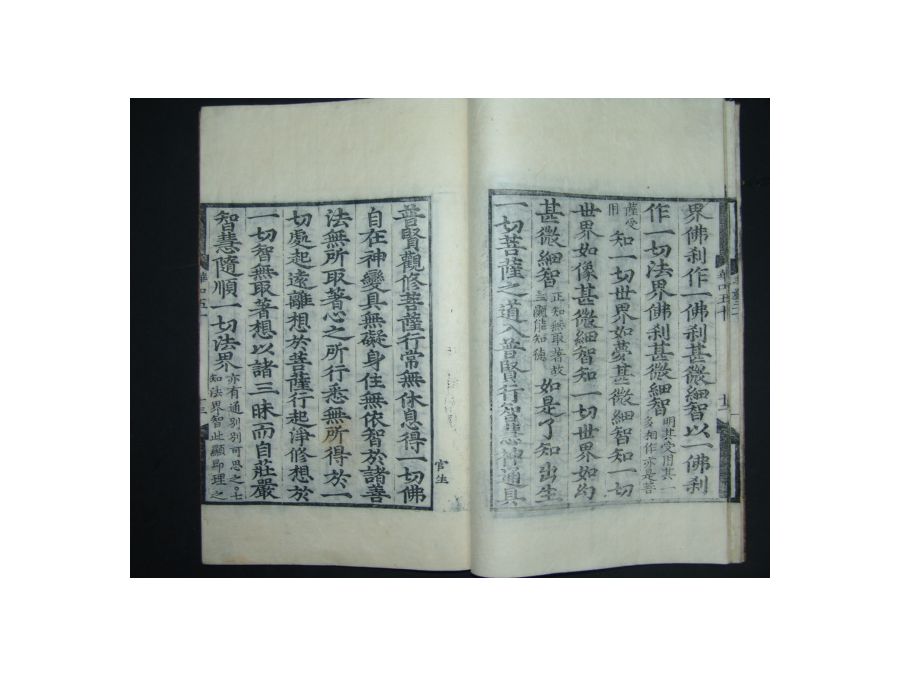 界佛刹作一佛刹甚微細智以一佛刹
作一切法界佛刹甚微細智
明其受用其一
多相作亦是菩
薩受
用
知一切世界如夢甚微細智知一切
世界如像甚微細智知一切世界如幻
甚微細智
正知無取著故
三關能知德
如是了知出生
一切菩薩之道入普賢行智慧神通具
官生
普賢觀修菩薩行常無休息得一切佛
自在神變具無礙身住無依智於諸善
法無所取著心之所行悉無所得於一
切處起遠離想於菩薩行起淨修想於
一切智無取著想以諸三昧而自莊嚴
智慧隨順一切法界
亦有通別別可思之七
知法界智此顯即理之